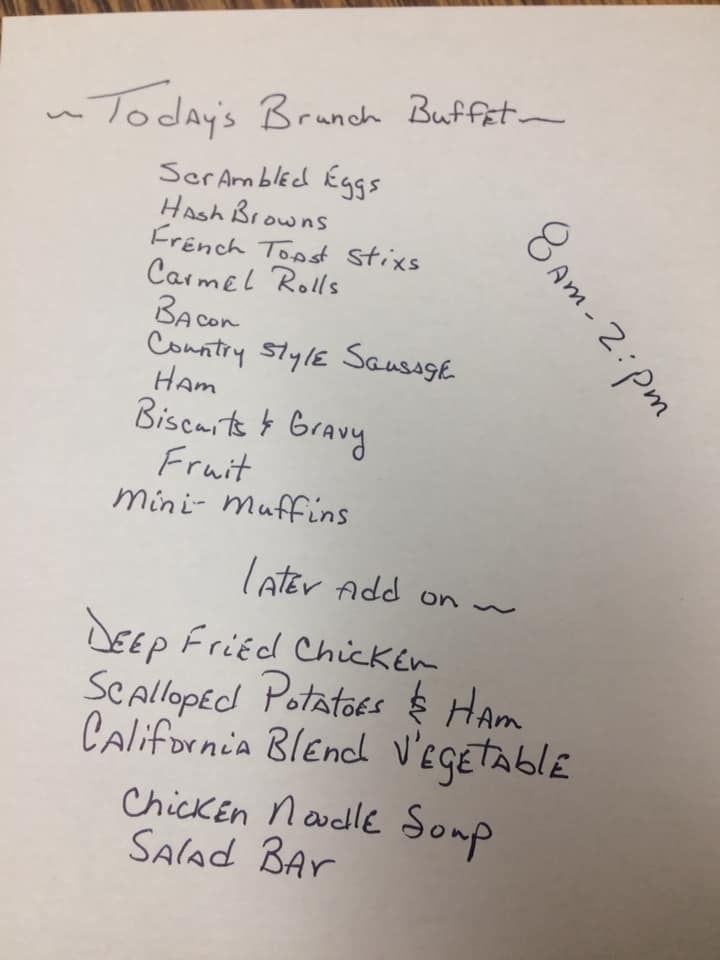 ~ Today's Brunch Buffet ~
Scrambled Eggs
Hash Browns
French Toast Stixs
Carmel Rolls
Bacon
Country Style Sausage
Ham
Biscuits & Gravy
Fruit
Mini-Muffins
8 AM - 2: pm
Later Add on ~
Deep Fried Chicken
Scalloped Potatoes & Ham
California Blend Vegetable
Chicken Noodle Soup
Salad Bar